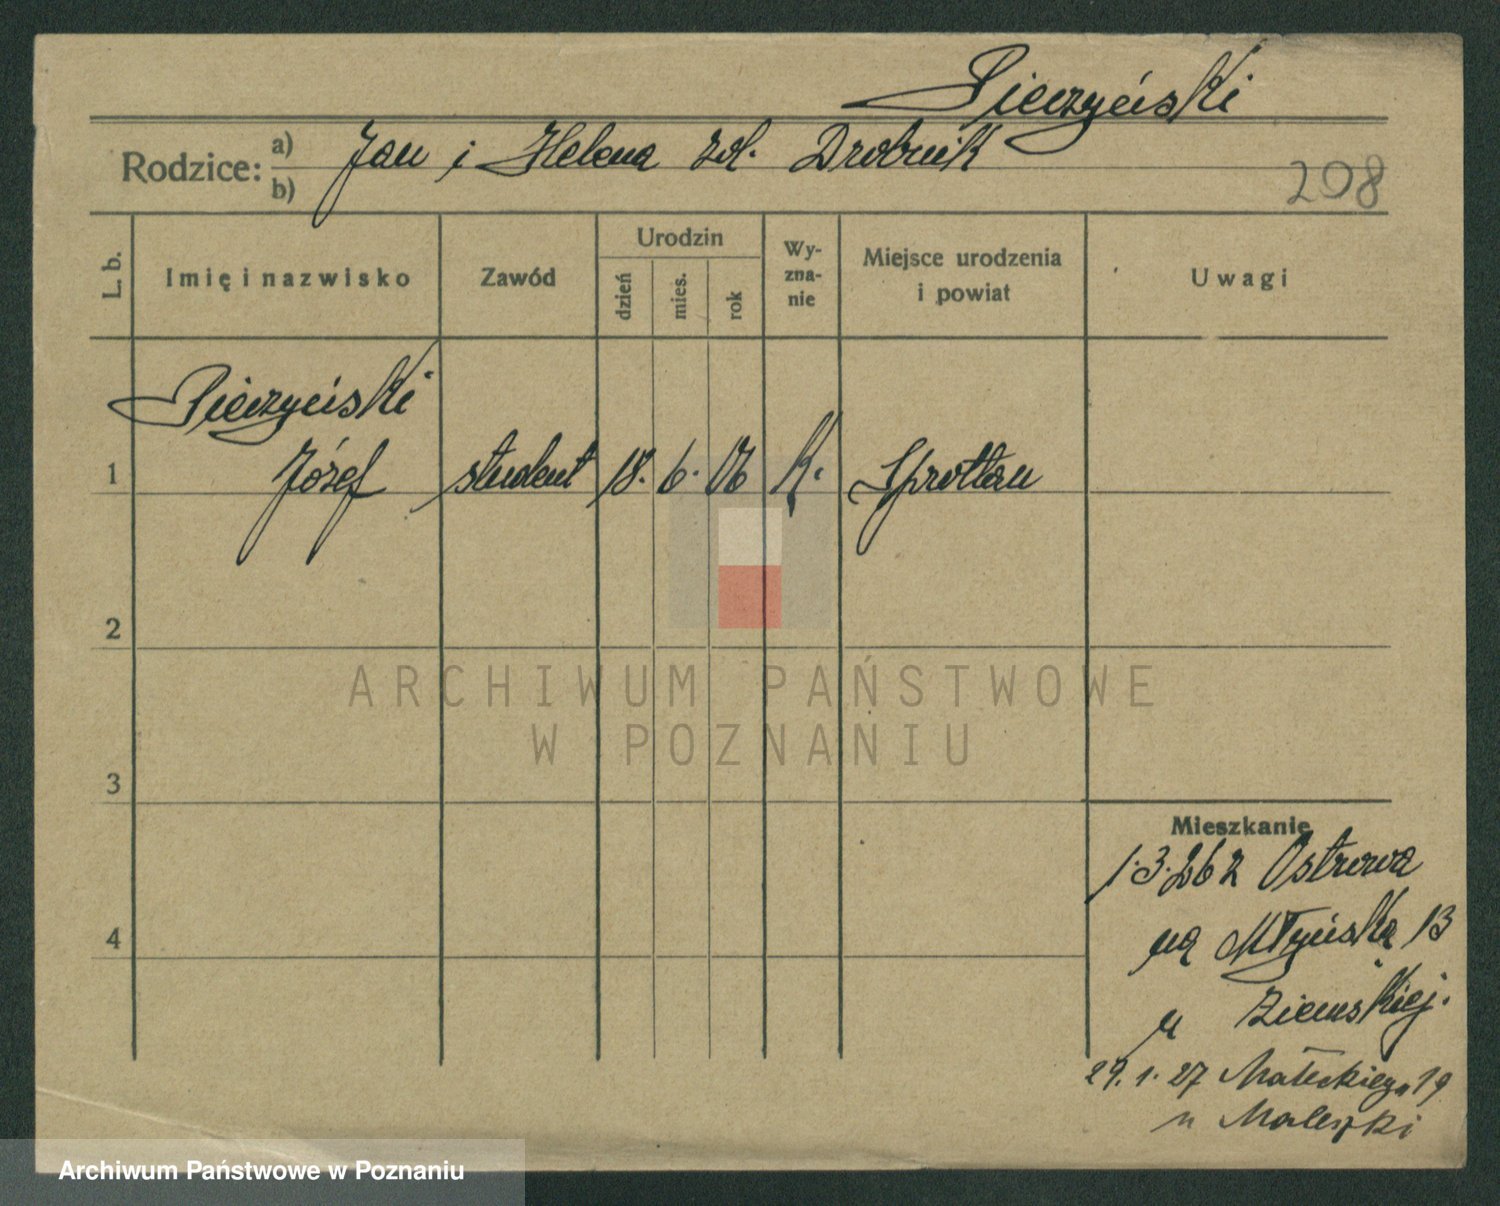 Pieczyński
Rodzice: a) b) Jan i Helena zd. Drobnik
208
L. b.
Imię i nazwisko
Zawód
Urodzin
dzień
mies.
rok
Wy-
zna-
nie
Miejsce urodzenia
i powiat
Uwagi
Pieczyński
1 Józef student 18. 6. 06 k. Sprottau
2
3
4
Mieszkanie
1.3.26 z Ostrowa
na Młyńską 13
u Ziemskiej.
29.1.27 Małeckiego 19
u
ARCHIWUM PAŃSTWOWE
W POZNANIU
Archiwum Państwowe w Poznaniu